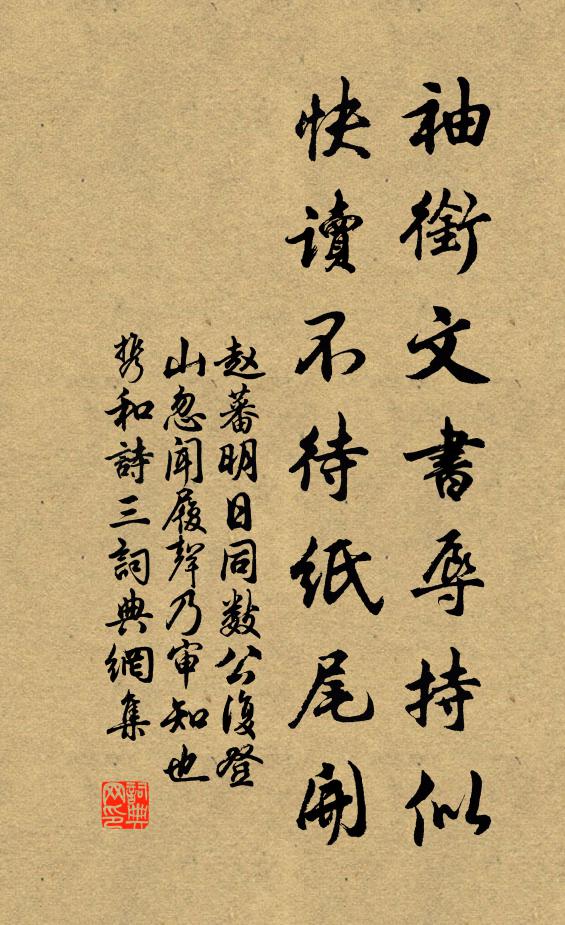 袖銜文書辱持似
快讀不待紙尾開
赵蕃明日同数公復登
山忽闻履聲乃审知也
携和詩三詞典網集
詞典网印